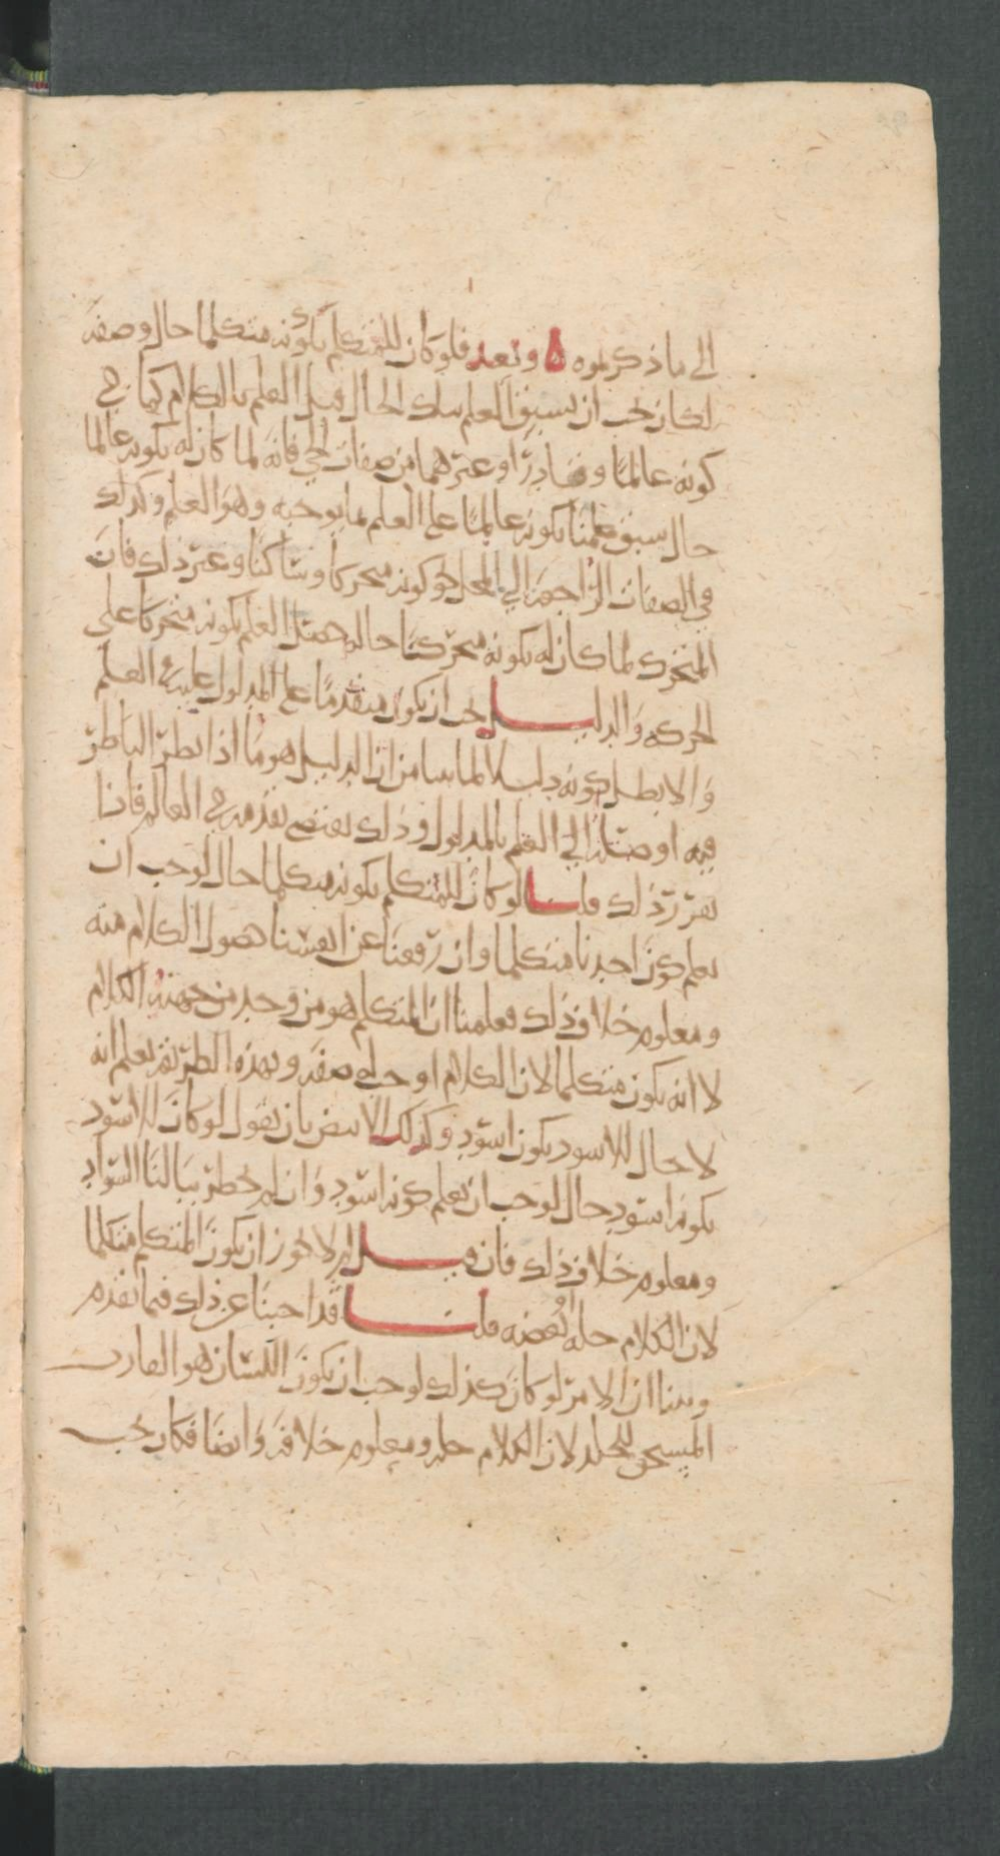 الى ما ذكرتموه ه وبعد فلو كان للمتكلم بكونه متكلما حال وصفة
لكان يجب ان يسبق العلم بتلك الحال قبل العلم بالكلام كما في
كونه عالمًا وقادرًا وغيرهما من صفات الحي فانه لما كان له بكونه عالما
حال سبق علمنا بكونه عالمًا على العلم بما يوجبه وهو العلم وكذلك
في الصفات الراجعة الى المحل نحو كونه متحركا وساكنا وغير ذلك فان
المتحرك لما كان له بكونه متحركًا حاله حصل العلم بكونه متحركا على
الحركه والدليل يجب ان يكون متقدمًا على المدلول عليه في العلم
والا بطل كونه دليلا لما بينا من ان الدليل هو ما اذا نظر الناظر
فيه اوصله الى العلم بالمدلول وذلك يقتضي تقدمه في العالم فاذا
تقرر ذلك قلنا لو كان للمتكلم بكونه متكلما حال لوجب ان
نعلم كون احدنا متكلما وان رفعنا عن انفسنا حصول الكلام منه
ومعلوم خلاف ذلك فعلمنا ان المتكلم هو من وجد من جهته الكلام
لا انه يكون متكلما لان الكلام اوجب له صفة وبهذه الطريقة نعلم انه
لا حال للاسود بكون اسود وكذلك الابيض بان نقول لو كان للاسود
بكونه اسود حال لوجب ان نعلم كونه اسود وان لم يخطر ببالنا السواد
ومعلوم خلاف ذلك فان قيل لم لا يجوز ان يكون المتكلم متكلما
لان الكلام حله او بعضه قلنا قد اجبنا عن ذلك فيما تقدم
وبينا ان الامر لو كان كذلك لوجب ان يكون اللسان هو القارئ
المستحق للجلد لان الكلام حله ومعلوم خلافه وايضا فكان يجب